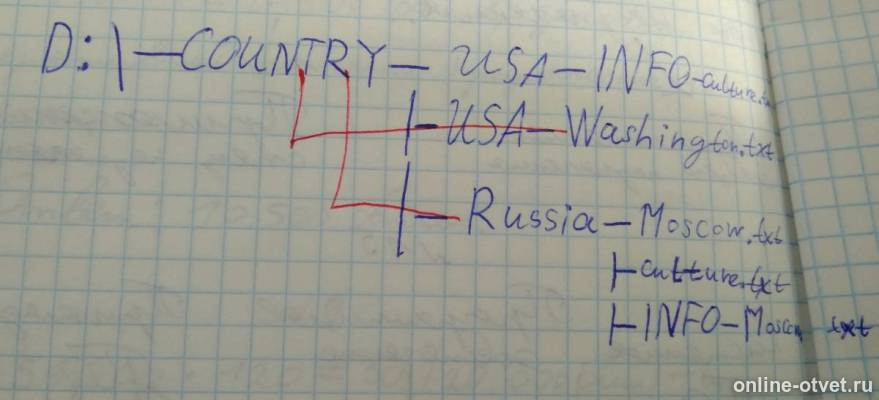 D:\—COUNTRY— USA—INFO-culture.txt
|-USA—Washington.txt
|-Russia—Moscow.txt
|-culture.txt
|-INFO-Moscow txt
online-otvet.ru